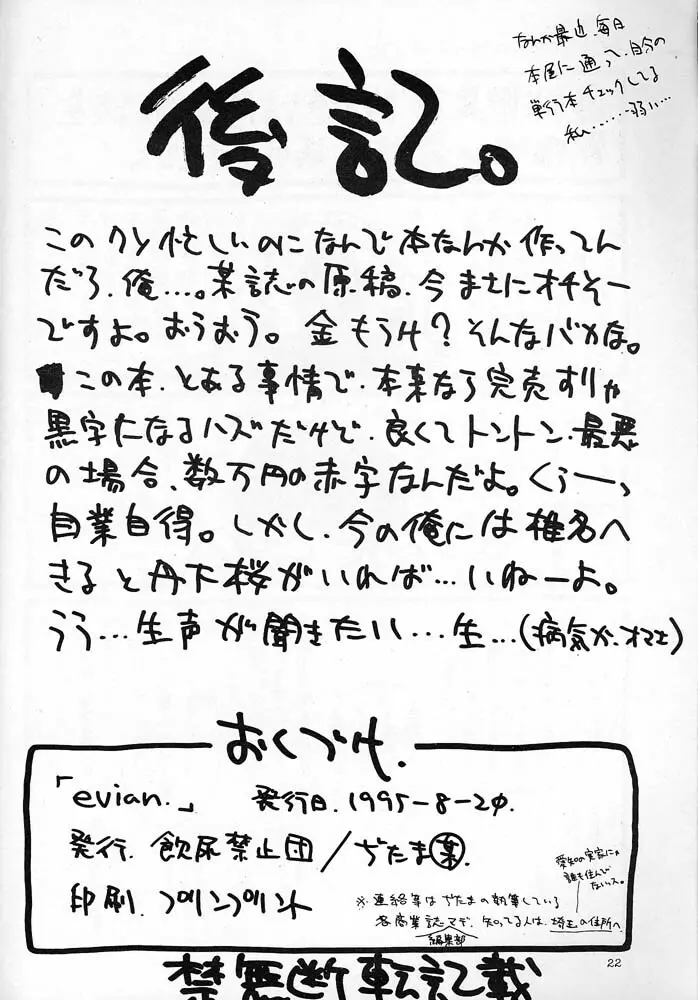 後記。
なんか最近、毎日
本屋に通って、自分の
単行本チェックしてる
私………弱い…
このクソ忙しいのになんで本なんか作ってん
だろ、俺…。某誌の原稿、今まさにオチそー
ですよ。おうおう。金もうけ?そんなバカな。
この本、とある事情で、本来なら完売すりゃ
黒字になるハズだけど、良くてトントン、最悪
の場合、数万円の赤字なんだよ。くぅーっ
自業自得。しかし、今の俺には椎名へ
きると丹下桜がいれば…いねーよ。
うう…生声が聞きたい…生…(病気か、オマエ)
おくづけ.
「evian.」 発行日. 1995-8-20.
発行. 飲尿禁止団/ぢたま㊞
印刷. プリンプリント
※連絡等はぢたまの執筆している
各商業誌マデ、知ってる人は、埼玉の住所へ
編集部
愛知の実家にゃ
誰も住んで
ないッス。
22
禁無断転記載